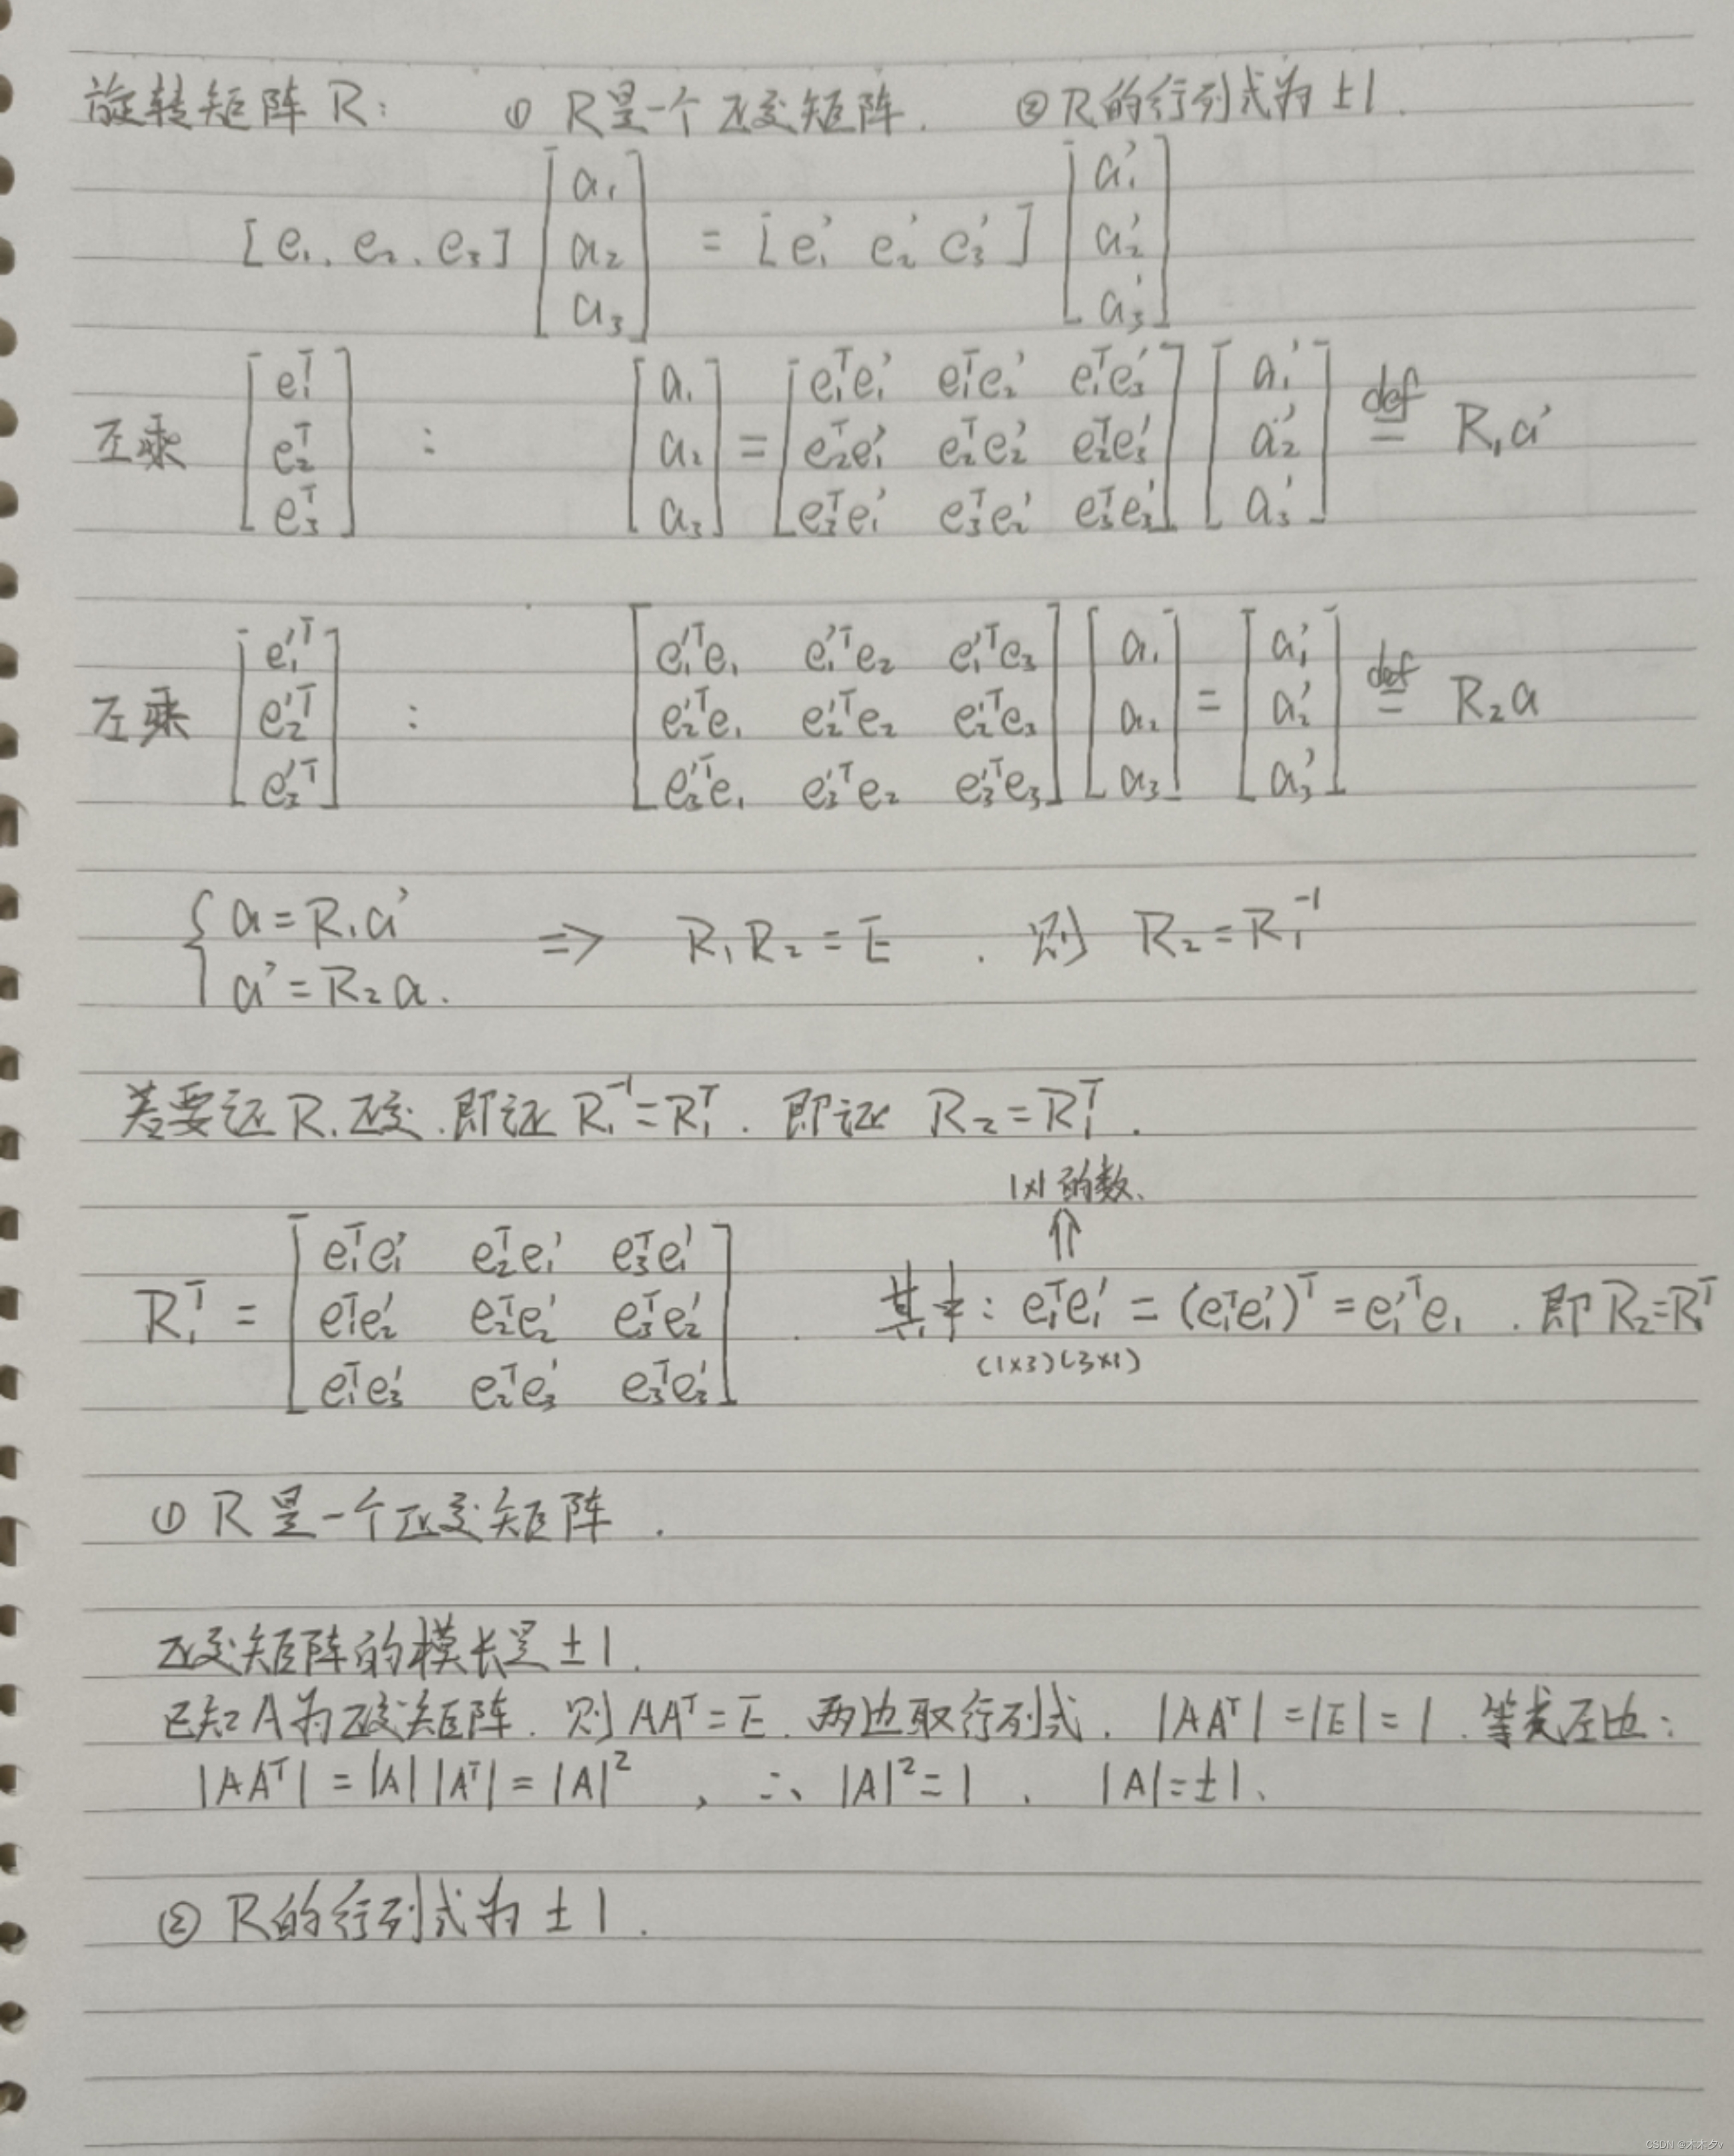 旋转矩阵 R: ① R是一个正交矩阵. ② R的行列式为 ±1.
[e₁, e₂, e₃] [a₁ a₂ a₃] = [e₁' e₂' e₃'] [a₁' a₂' a₃']
左乘 [e₁ᵀ e₂ᵀ e₃ᵀ] : [a₁ a₂ a₃] = [e₁ᵀe₁' e₁ᵀe₂' e₁ᵀe₃' e₂ᵀe₁' e₂ᵀe₂' e₂ᵀe₃' e₃ᵀe₁' e₃ᵀe₂' e₃ᵀe₃'] [a₁' a₂' a₃'] def= R₁a'
左乘 [e₁'ᵀ e₂'ᵀ e₃'ᵀ] : [e₁'ᵀe₁ e₁'ᵀe₂ e₁'ᵀe₃ e₂'ᵀe₁ e₂'ᵀe₂ e₂'ᵀe₃ e₃'ᵀe₁ e₃'ᵀe₂ e₃'ᵀe₃] [a₁ a₂ a₃] = [a₁' a₂' a₃'] def= R₂a
{ a = R₁a'
a' = R₂a. => R₁R₂ = E . 则 R₂ = R₁⁻¹
若要证 R₁正交. 即证 R₁⁻¹ = R₁ᵀ. 即证 R₂ = R₁ᵀ.
1×1的数.
⇑
R₁ᵀ = [e₁ᵀe₁' e₂ᵀe₁' e₃ᵀe₁' e₁ᵀe₂' e₂ᵀe₂' e₃ᵀe₂' e₁ᵀe₃' e₂ᵀe₃' e₃ᵀe₃'] . 其中: e₁ᵀe₁' = (e₁ᵀe₁')ᵀ = e₁'ᵀe₁ . 即 R₂=R₁ᵀ
(1×3)(3×1)
① R是一个正交矩阵.
正交矩阵的模长是 ±1.
已知A为正交矩阵. 则 AAᵀ = E. 两边取行列式. |AAᵀ| = |E| = 1. 等式左边:
|AAᵀ| = |A||Aᵀ| = |A|² , ∴ |A|² = 1 . |A| = ±1.
② R的行列式为 ±1.
CSDN @木木夕